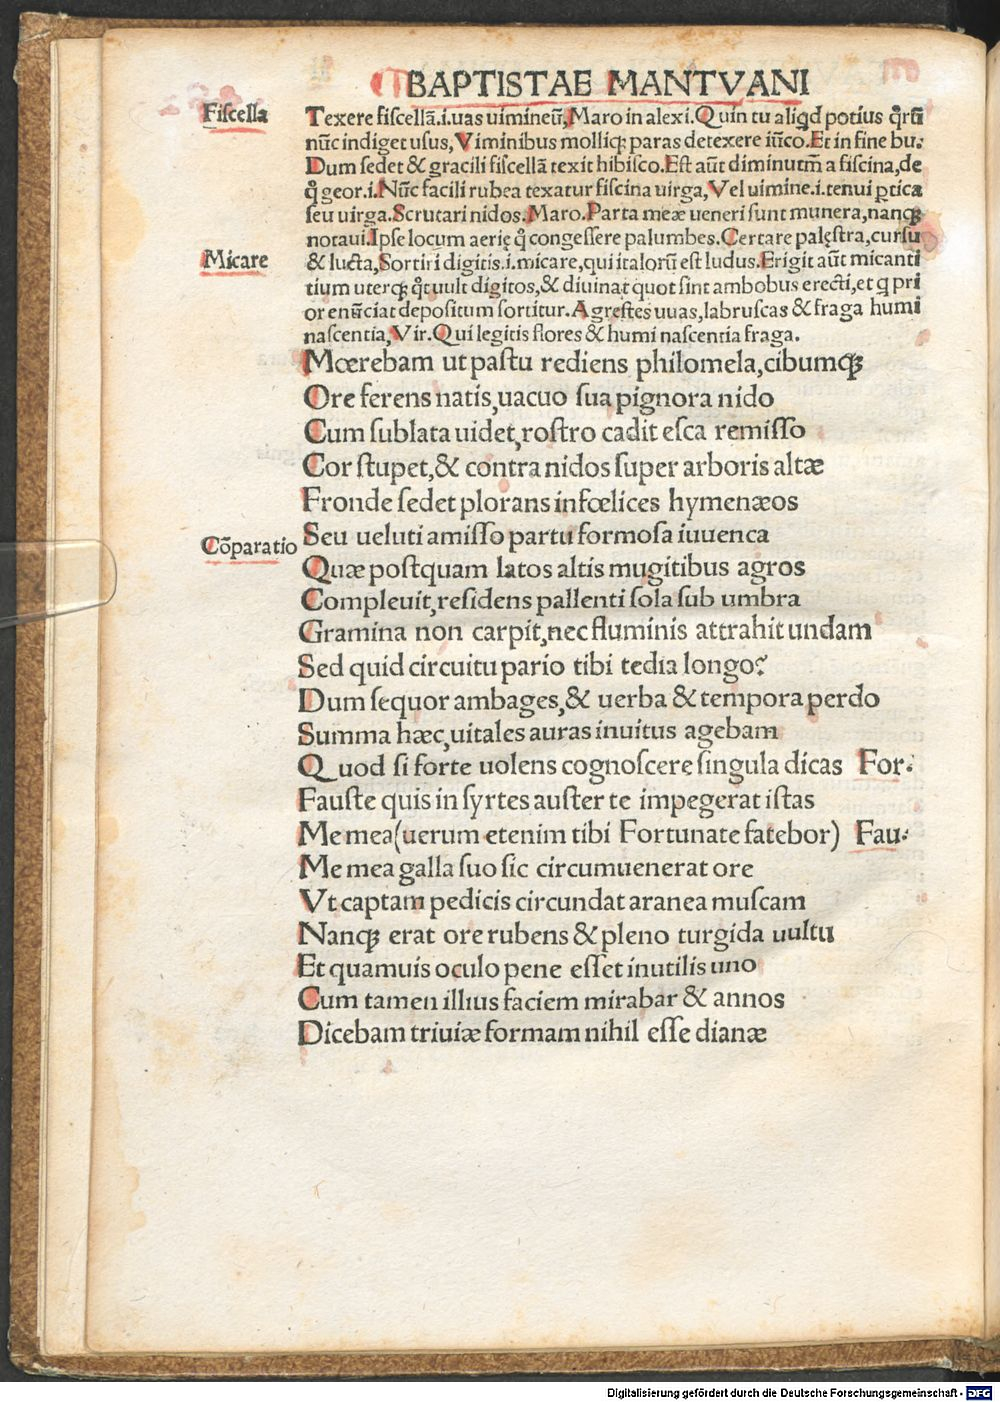 BAPTISTAE MANTVANI
Fiſcella
Texere fiſcellā.i.uas uimineū, Maro in alexi. Quin tu aliqd potius qͥrū
nūc indiget uſus, Viminibus molliqꝫ paras detexere iūco. Et in fine bu.
Dum ſedet & gracili fiſcellā texit hibiſco. Eſt aūt diminutm̄ a fiſcina, de
qͥ geor.i. Nūc facili rubea texatur fiſcina uirga, Vel uimine.i.tenui ꝑtica
ſeu uirga. Scrutari nidos. Maro. Parta meæ ueneri ſunt munera, nanqꝫ
notaui. Ipſe locum aerię qͥ congeſſere palumbes. Certare palęſtra, curſu
Micare
& lucta, Sortiri digitis.i.micare, qui italorū eſt ludus. Erigit aūt micanti
tium uterqꝫ qͦt uult digitos, & diuinat quot ſint ambobus erecti, et q pri
or enūciat depoſitum ſortitur. Agreſtes uuas, labruſcas & fraga humi
naſcentia, Vir. Qui legitis flores & humi naſcentia fraga.
Mœrebam ut paſtu rediens philomela, cibumqꝫ
Ore ferens natis, uacuo ſua pignora nido
Cum ſublata uidet, roſtro cadit eſca remiſſo
Cor ſtupet, & contra nidos ſuper arboris altæ
Fronde ſedet plorans infœlices hymenæos
Cōparatio
Seu ueluti amiſſo partu formoſa iuuenca
Quæ poſtquam latos altis mugitibus agros
Compleuit, reſidens pallenti ſola ſub umbra
Gramina non carpit, nec fluminis attrahit undam
Sed quid circuitu pario tibi tedia longo?
Dum ſequor ambages, & uerba & tempora perdo
Summa hæc, uitales auras inuitus agebam
Quod ſi forte uolens cognoſcere ſingula dicas For.
Fauſte quis in ſyrtes auſter te impegerat iſtas
Me mea (uerum etenim tibi Fortunate fatebor) Fau.
Me mea galla ſuo ſic circumuenerat ore
Vt captam pedicis circundat aranea muſcam
Nanqꝫ erat ore rubens & pleno turgida uultu
Et quamuis oculo pene eſſet inutilis uno
Cum tamen illius faciem mirabar & annos
Dicebam triuiæ formam nihil eſſe dianæ
Digitalisierung gefördert durch die Deutsche Forschungsgemeinschaft - DFG